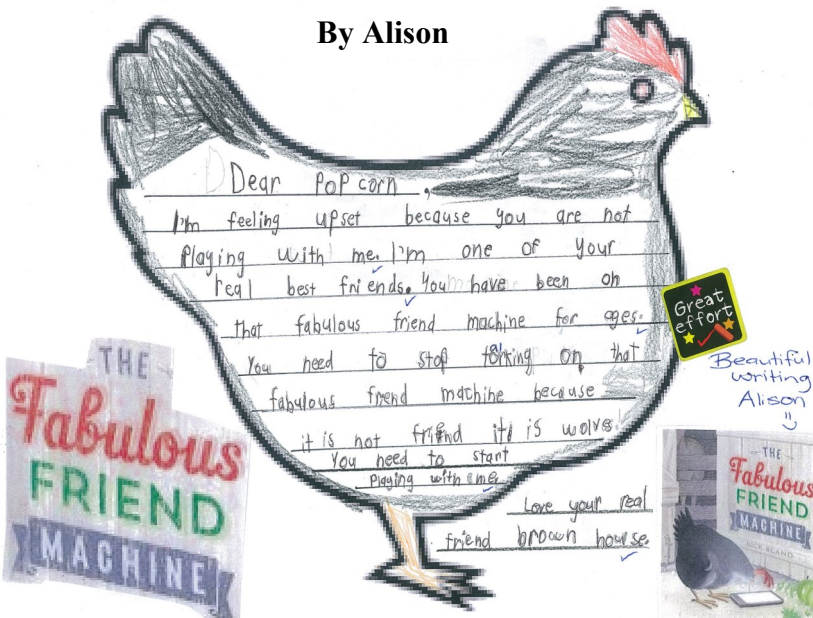 By Alison
Dear Popcorn,
I'm feeling upset because you are not
playing with me. I'm one of your
real best friends. You have been on
that fabulous friend machine for ages.
You need to stop talking on that
fabulous friend machine because
it is not friend it is wolve
You need to start
playing with me.
Love your real
friend brown hourse.
Great
effort
Beautiful
writing
Alison
THE
Fabulous
FRIEND
MACHINE
THE
Fabulous
FRIEND
MACHINE
NICK BLAND